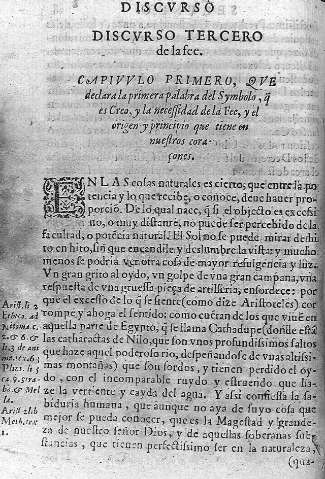 DISCVRSO
DISCVRSO TERCERO
de la fee.
CAPIVVLO PRIMERO, QVE
declara la primera palabra del Symbolo, q̃
es Creo, y la necessidad de la Fee, y el
origen y principio que tiene en
nuestros cora-
çones.
EN LAS cosas naturales es cierto, que entre la po
tencia y lo que recibe, o conoce, deue hauer pro-
porciõ. De lo qual nace, q̃ si el objecto es excessi
uo, o muy distante, no puede ser percebido de la
facultad, o potẽcia natural. El Sol no se puede mirar de hi
to en hito, sin que encandile y deslumbre la vista: y mucho
menos se podria ver otra cosa de mayor refulgencia y luz.
Vn gran grito al oydo, vn golpe de vna gran campana, vna
respuesta de vna gruessa pieça de artilleria, ensordece: por
que el excesso de lo q̃ se siente (como dize Aristoteles) cor
rompe, y ahoga el sentido: como cuẽtan de los que viuẽ en
aquella parte de Egypto, q̃ se llama Cathadupe (donde estã
las catharactas de Nilo, que son vnos profundissimos saltos
que haze aquel poderoso rio, despeñandose de vnas altissi
mas montañas) que son sordos, y tienen perdido el oy-
do, con el incomparable ruydo y estruendo que ha-
ze la vertiente y cayda del agua. Y assi confiessa la sa-
biduria humana, que aunque no aya de suyo cosa que
mejor se pueda conocer, que es la Magestad y grande-
za de nuestro señor Dios, y de aquellas soberanas sub-
stancias, que tienen perfectissimo ser en la naturaleza,
(qua-
Arist. li. 2
Plin. li. 5
c. 9. stra-
bo. & Me
la.
Arist. lib
Meth. tex
1.